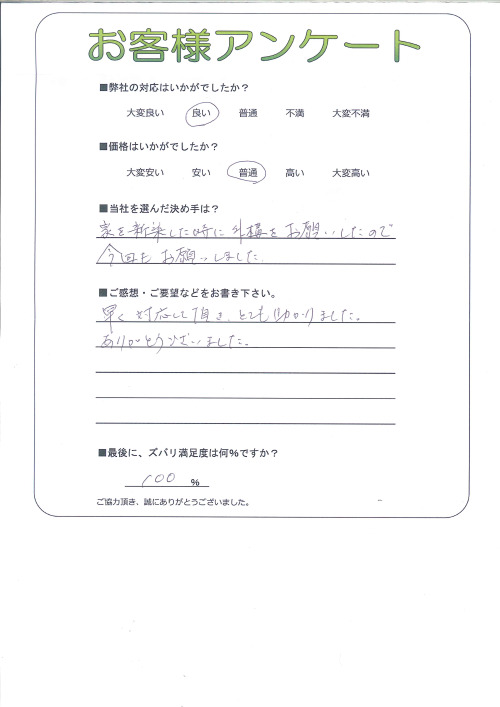 お客様アンケート
■弊社の対応はいかがでしたか？
大変良い 良い 普通 不満 大変不満
■価格はいかがでしたか？
大変安い 安い 普通 高い 大変高い
■当社を選んだ決め手は？
家を新築した時に外構をお願いしたので
今回もお願いしました
■ご感想・ご要望などをお書き下さい。
早く対応して頂き、とても助かりました。
ありがとうございました。
■最後に、ズバリ満足度は何％ですか？
100 ％
ご協力頂き、誠にありがとうございました。